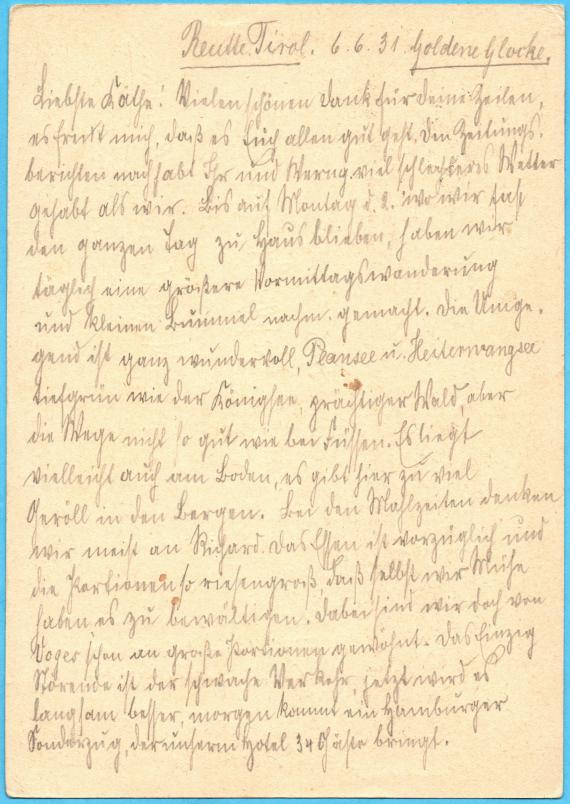 Reutte Tirol. 6.6.31 Goldene Glocke.
Liebste Käthe! Vielen schönen Dank für Deine Zeilen,
es freut mich, daß es Euch allen gut geht. Den Zeitungs-
berichten nach habt Ihr und viel schlechteres Wetter
gehabt als wir. Bis auf Montag d. 2. wo wir fast
den ganzen Tag zu Haus blieben, haben wir
täglich eine größere Vormittagswanderung
und kleinen Bummel nachm. gemacht. Die Umge-
gend ist ganz wundervoll, Plansee u. Heiterwangsee
tiefgrün wie der Königsee, prächtiger Wald, aber
die Wege nicht so gut wie bei Füssen. Es liegt
vielleicht auch am Boden, es gibt hier zu viel
Geröll in den Bergen. Bei den Mahlzeiten denken
wir meist an Richard. Das Essen ist vorzüglich und
die Portionen so riesengroß, daß selbst wir Mühe
haben es zu bewältigen. Dabei sind wir doch von
schon an große Portionen gewöhnt. Das Einzig
Störende ist der schwache Verkehr, jetzt wird es
langsam besser, morgen kommt ein Hamburger
Sonderzug, der unserm Hotel 34 Gäste bringt.